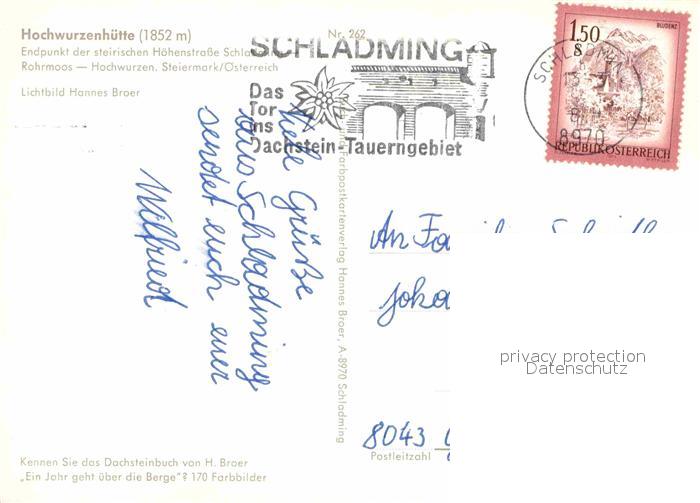 Hochwurzenhütte (1852 m)
Endpunkt der steirischen Höhenstraße Schladming
Rohrmoos — Hochwurzen. Steiermark/Österreich
Lichtbild Hannes Broer
Nr. 262
SCHLADMING
Das
Tor
ins
Dachstein-Tauerngebiet
SCHLADMING
8970
1.50
S
BLUDENZ
REPUBLIK ÖSTERREICH
Viele Grüße
aus Schladming
sendet euch euer
Wilfried
Farbpostkartenverlag Hannes Broer, A-8970 Schladming
An Fa
Joka
privacy protection
Datenschutz
8043
Postleitzahl
Kennen Sie das Dachsteinbuch von H. Broer
„Ein Jahr geht über die Berge"? 170 Farbbilder